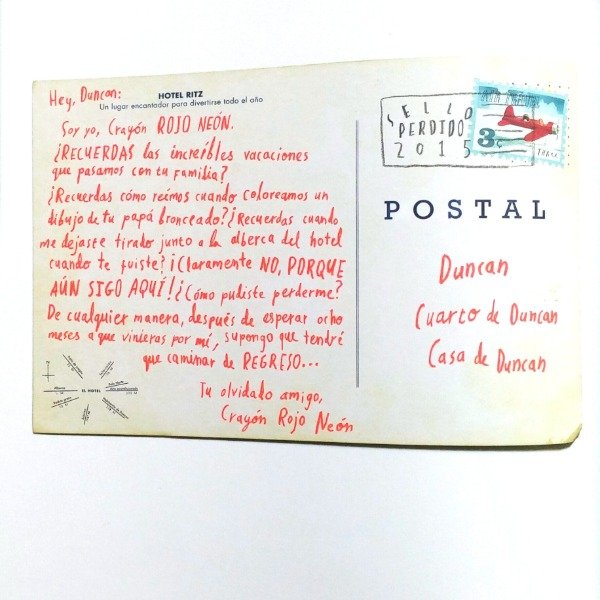 Hey, Duncan:
HOTEL RITZ
Un lugar encantador para divertirse todo el año
Soy yo, Crayón ROJO NEÓN.
¿RECUERDAS las increíbles vacaciones
que pasamos con tu familia?
¿Recuerdas cómo reímos cuando coloreamos un
dibujo de tu papá bronceado? ¿Recuerdas cuando
me dejaste tirado junto a la alberca del hotel
cuando te fuiste? ¡Claramente NO, PORQUE
AÚN SIGO AQUÍ! ¿Cómo pudiste perderme?
De cualquier manera, después de esperar ocho
meses a que vinieras por mí, supongo que tendré
que caminar de REGRESO...
Tu olvidado amigo,
Crayón Rojo Neón
EL HOTEL
SELLO
PERDIDO
2015
3
POSTAL
Duncan
Cuarto de Duncan
Casa de Duncan